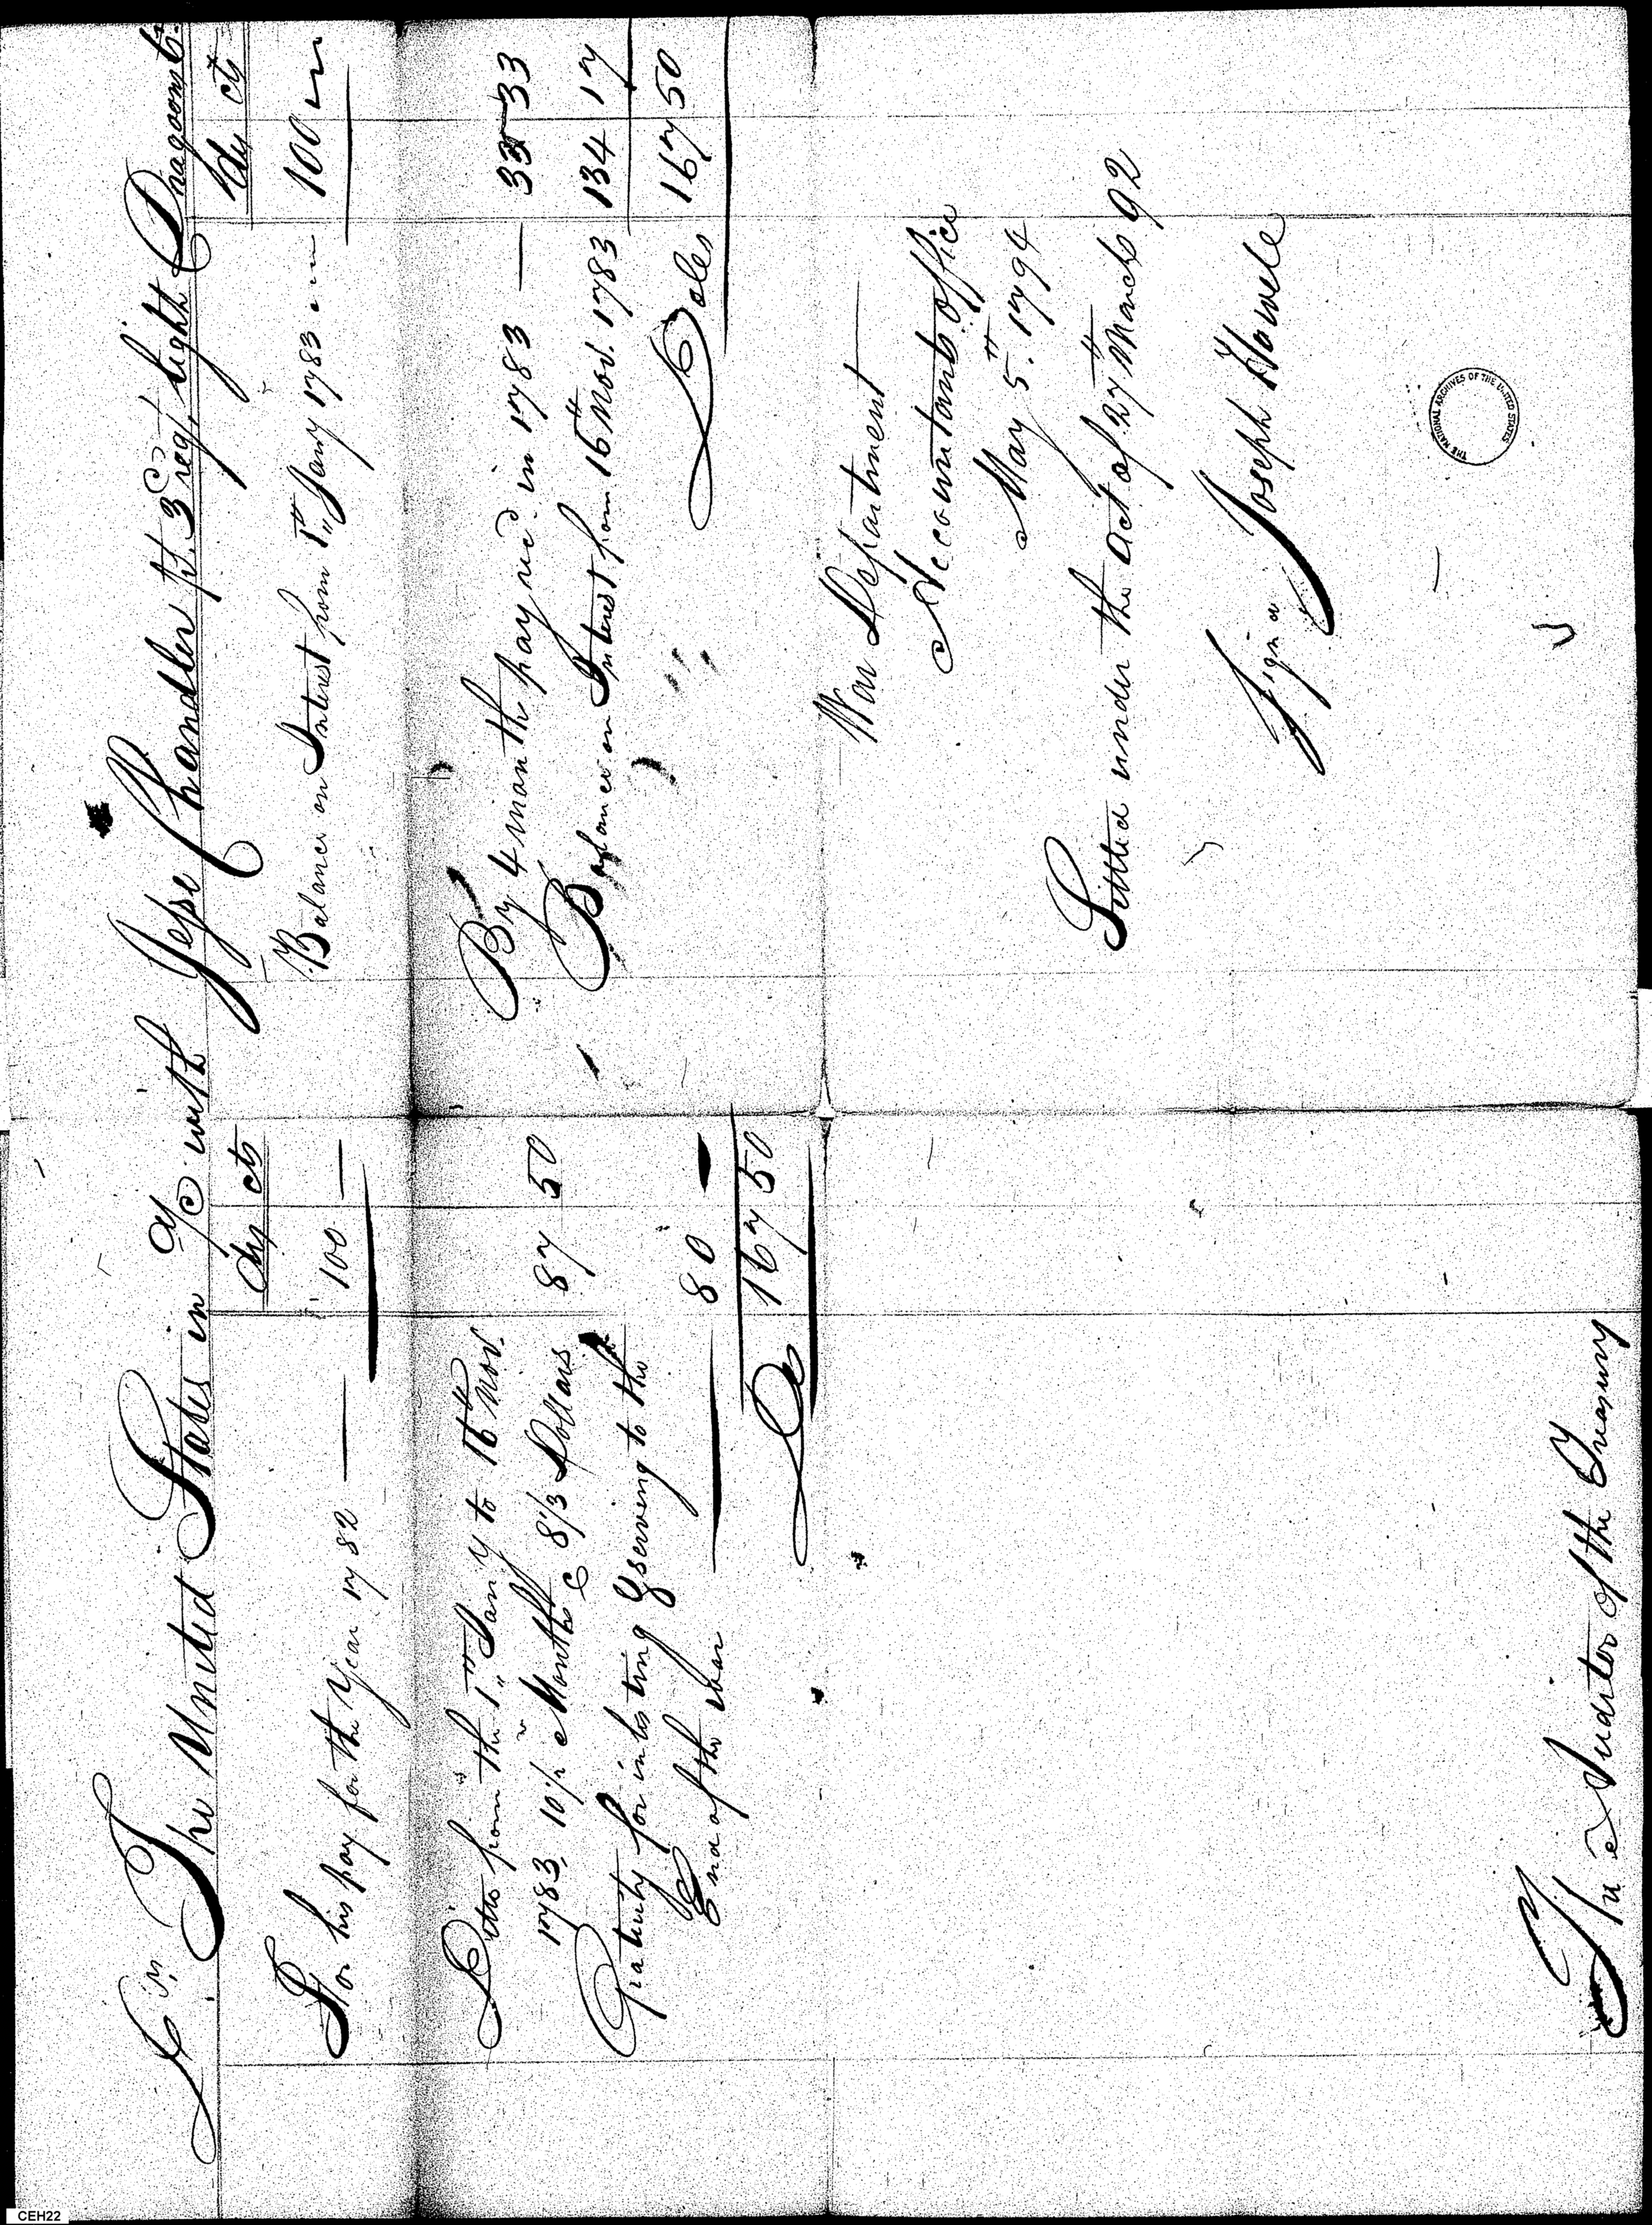 Dr. The United States in a/c with Jesse Chandler pt. 3 regt. Light Dragoons Cr.
Dys cts
For his pay for the Year 1782 — 100 —
Ditto from the 1st Jany to 16th Nov.
1783, 10 1/2 Months @ 8 1/3 Dollars 87 50
Gratuity for inlisting & serving to the
End of the war — 80 —
Ds 167 50
Dy cts
Balance on Interest from 1st Jany 1783 100
By 4 months pay recd. in 1783 — 33 33
Balance on Interest from 16th Nov. 1783 134 17
Doles 167 50
War Department
Accountants office
May 5th. 1794
Settled under the act of 27th March 92
Signd Joseph Howell
The Auditor of the Treasury
THE NATIONAL ARCHIVES OF THE UNITED STATES
CEH22